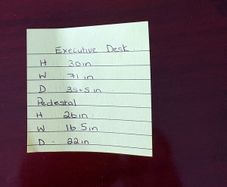 Executive Desk
H 30in
W 71in
D 35.5in
Pedestal
H 26in
W 16.5in
D 22in